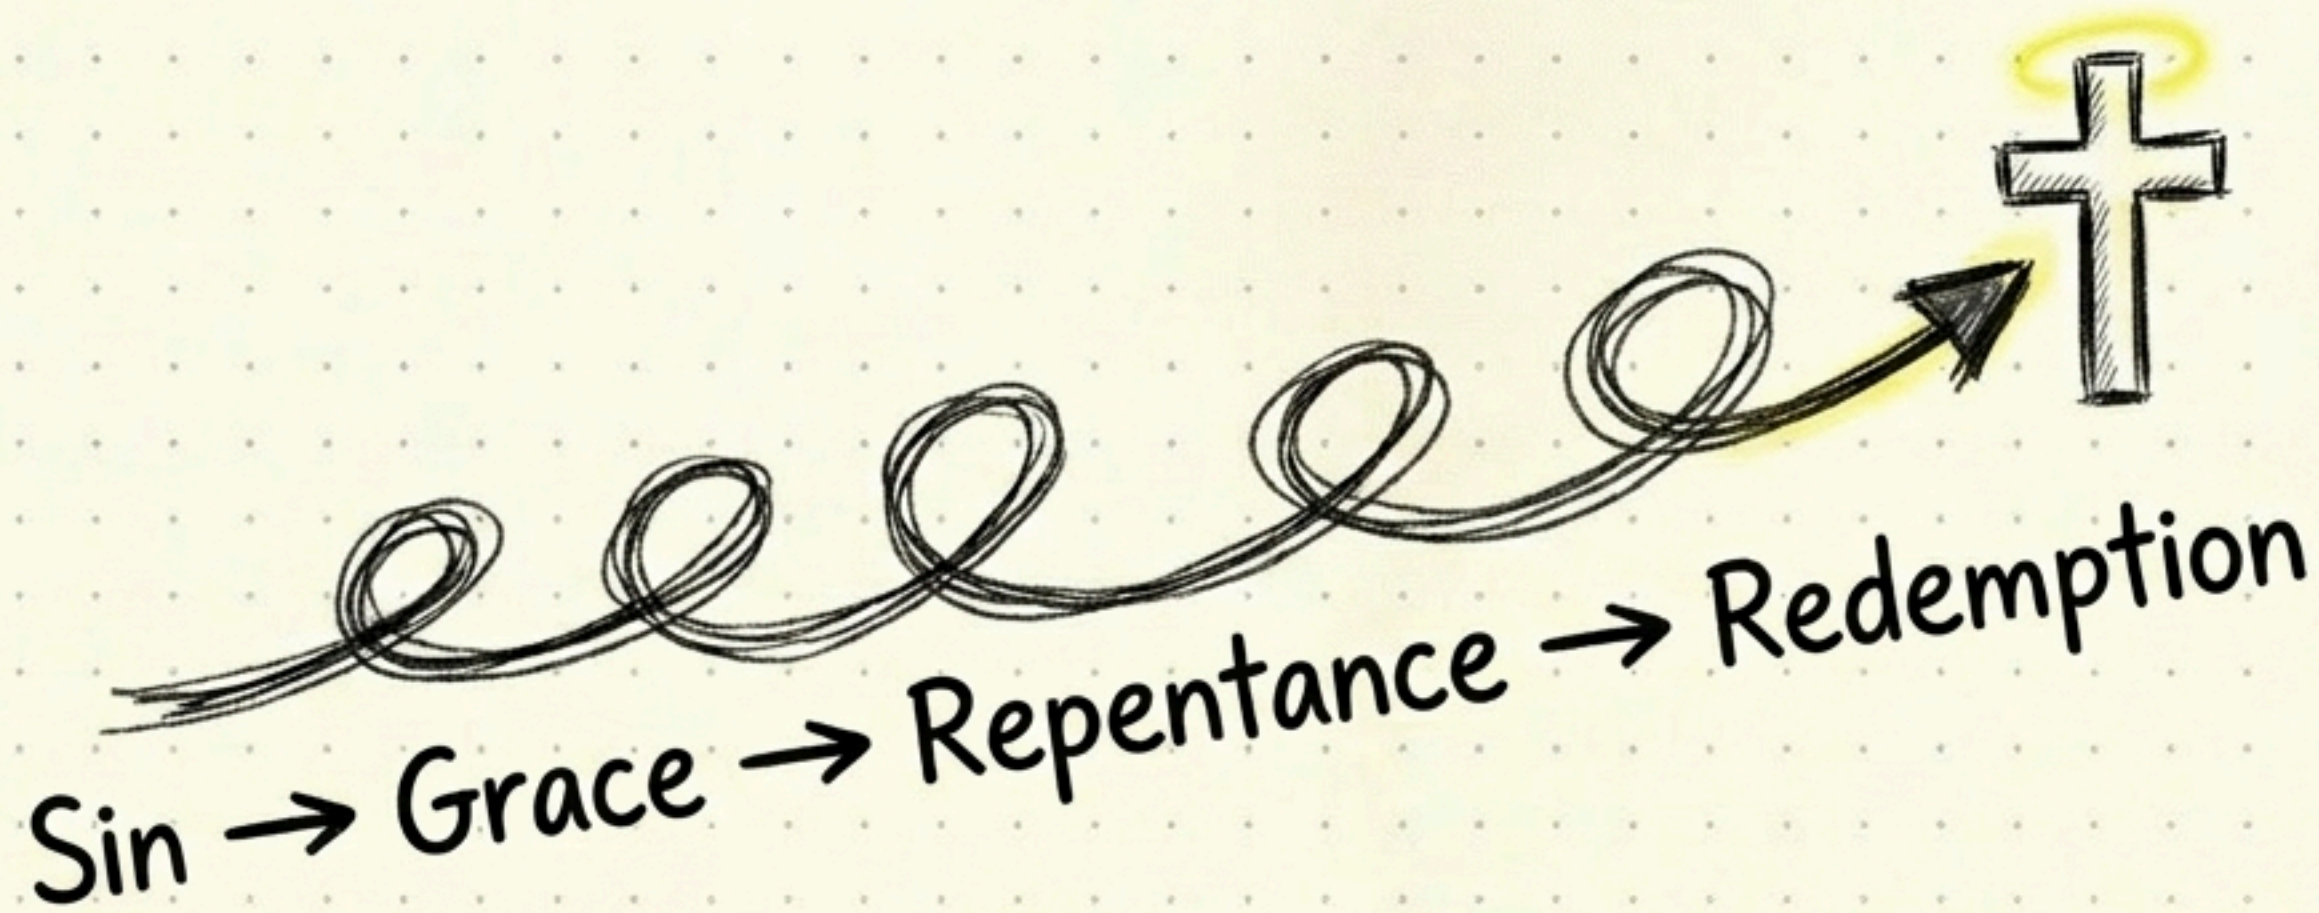 Sin → Grace → Repentance → Redemption